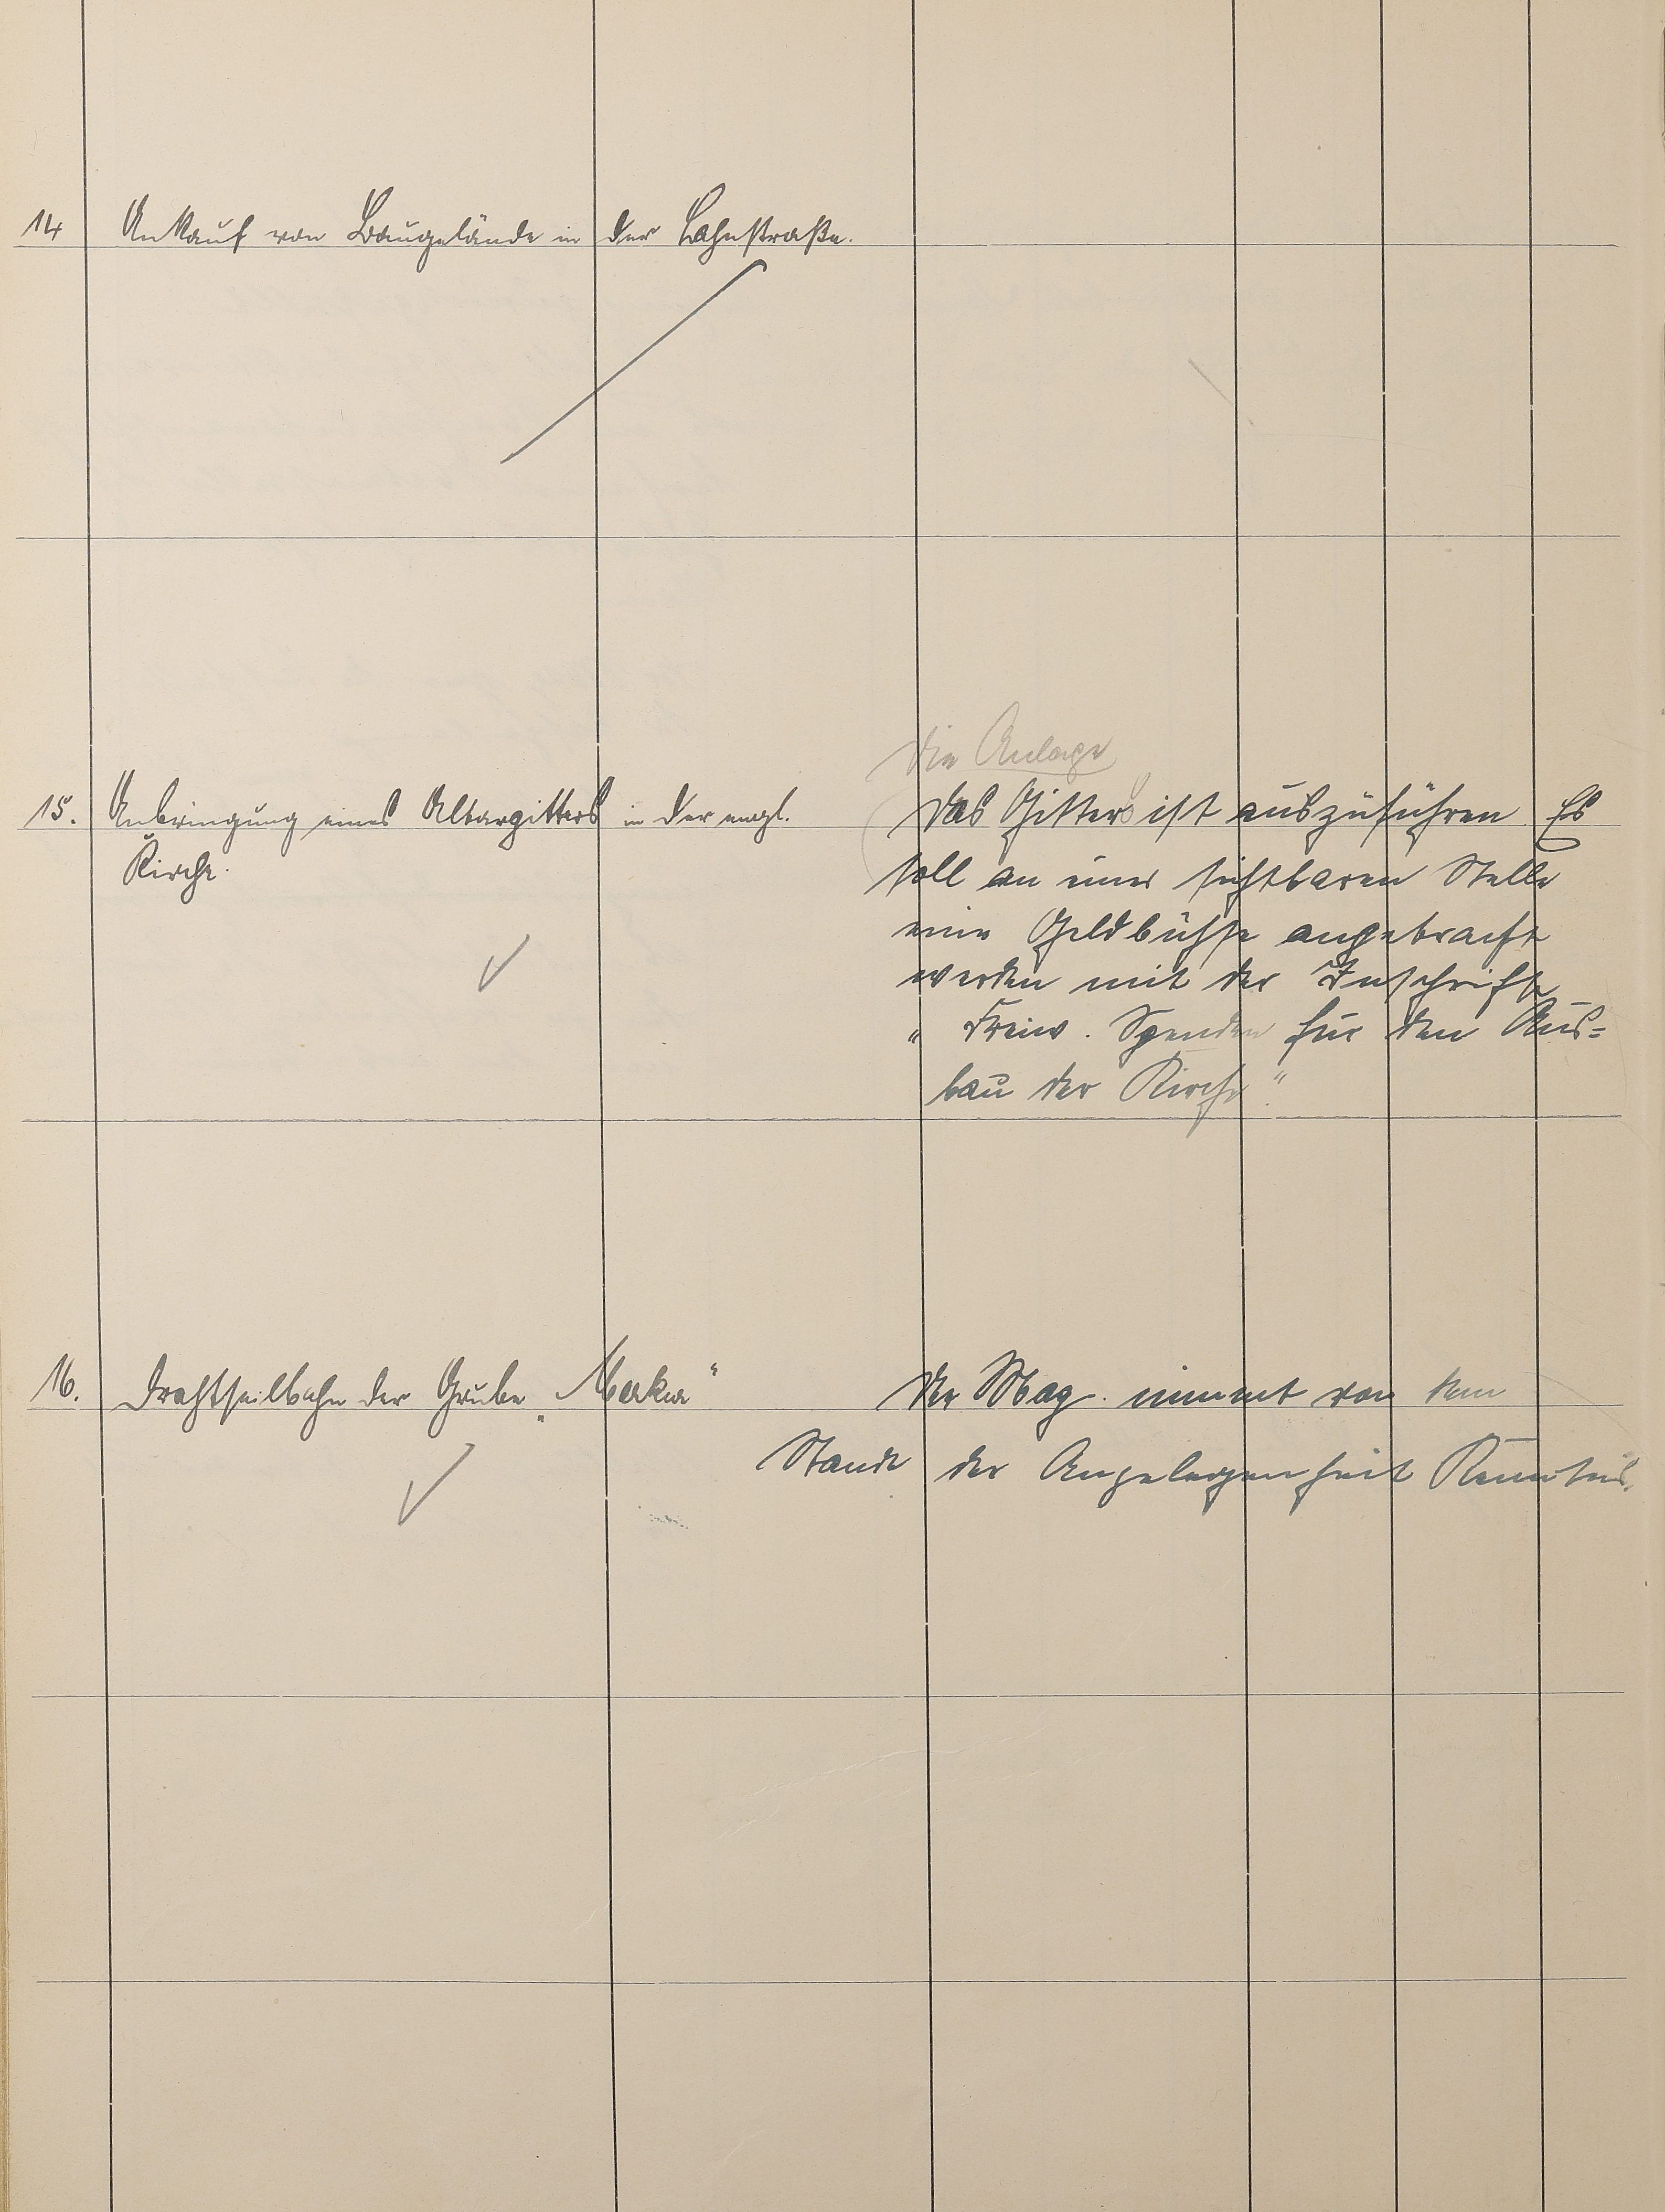 14 Ankauf von Baugelände in der Lahnstraße.
die Anlage
15. Anbringung eines Altargitters in der engl. Das Gitter ist auszuführen Es
Kirche. soll an einer sichtbaren Stelle
eine Geldbüchse angebracht
werden mit der Inschrift
„ Freiw. Spenden für den Aus=
bau der Kirche."
16. Drahtseilbahn der Grube „ " Der Mag. nimmt von dem
Stande der Angelegenheit Kenntnis.